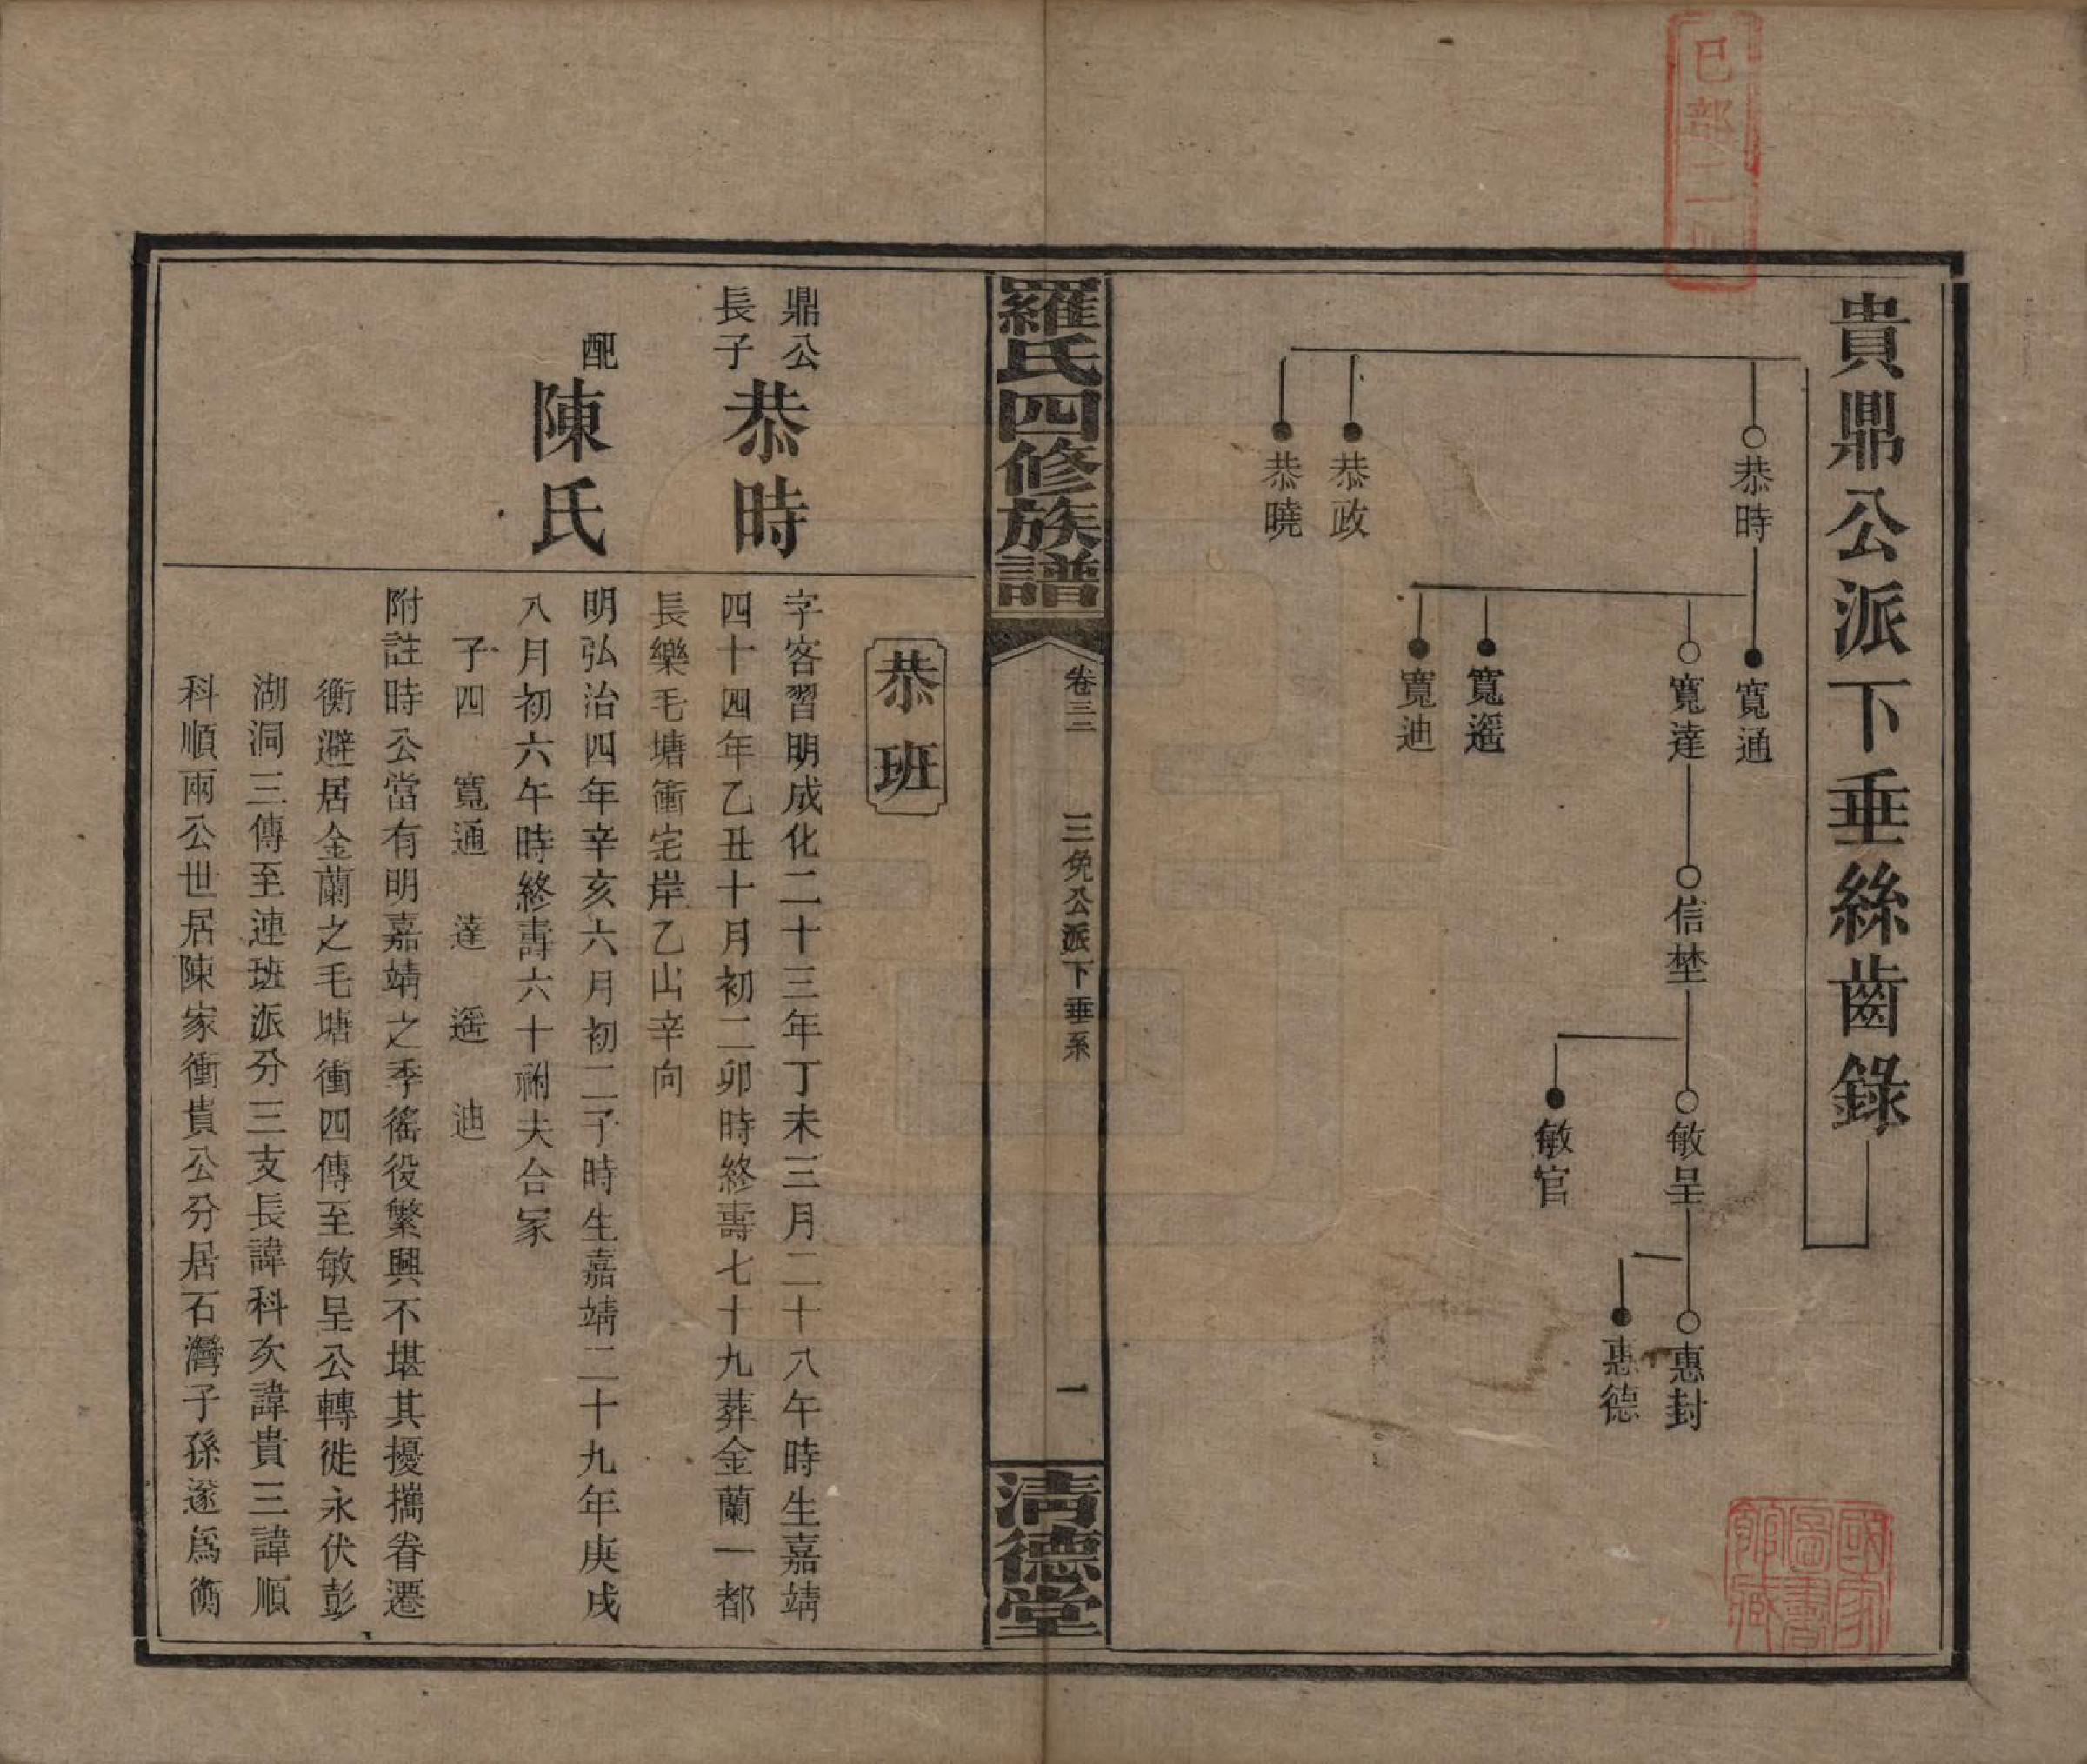 貴鼎公派下垂絲齒錄
恭時
恭政
恭曉
寬通
寬達
寬遥
寬迪
信埜
敏呈
敏官
惠封
惠德
已部二
國家
圖書
館藏
羅氏四修族譜
卷三二
三免公派下垂系
一
清德堂
恭班
鼎公
長子
恭時
字客習明成化二十三年丁未三月二十八午時生嘉靖
四十四年乙丑十月初二卯時終壽七十九葬金蘭一都
長樂毛塘衝宅岸乙山辛向
配
陳氏
明弘治四年辛亥六月初二子時生嘉靖二十九年庚戌
八月初六午時終壽六十祔夫合冢
子四 寬通 達 遥 迪
附註時公當有明嘉靖之季徭役繁興不堪其擾攜眷遷
衡避居金蘭之毛塘衝四傳至敏呈公轉徙永伏彭
湖洞三傳至連班派分三支長諱科次諱貴三諱順
科順兩公世居陳家衝貴公分居石灣子孫遂爲衡